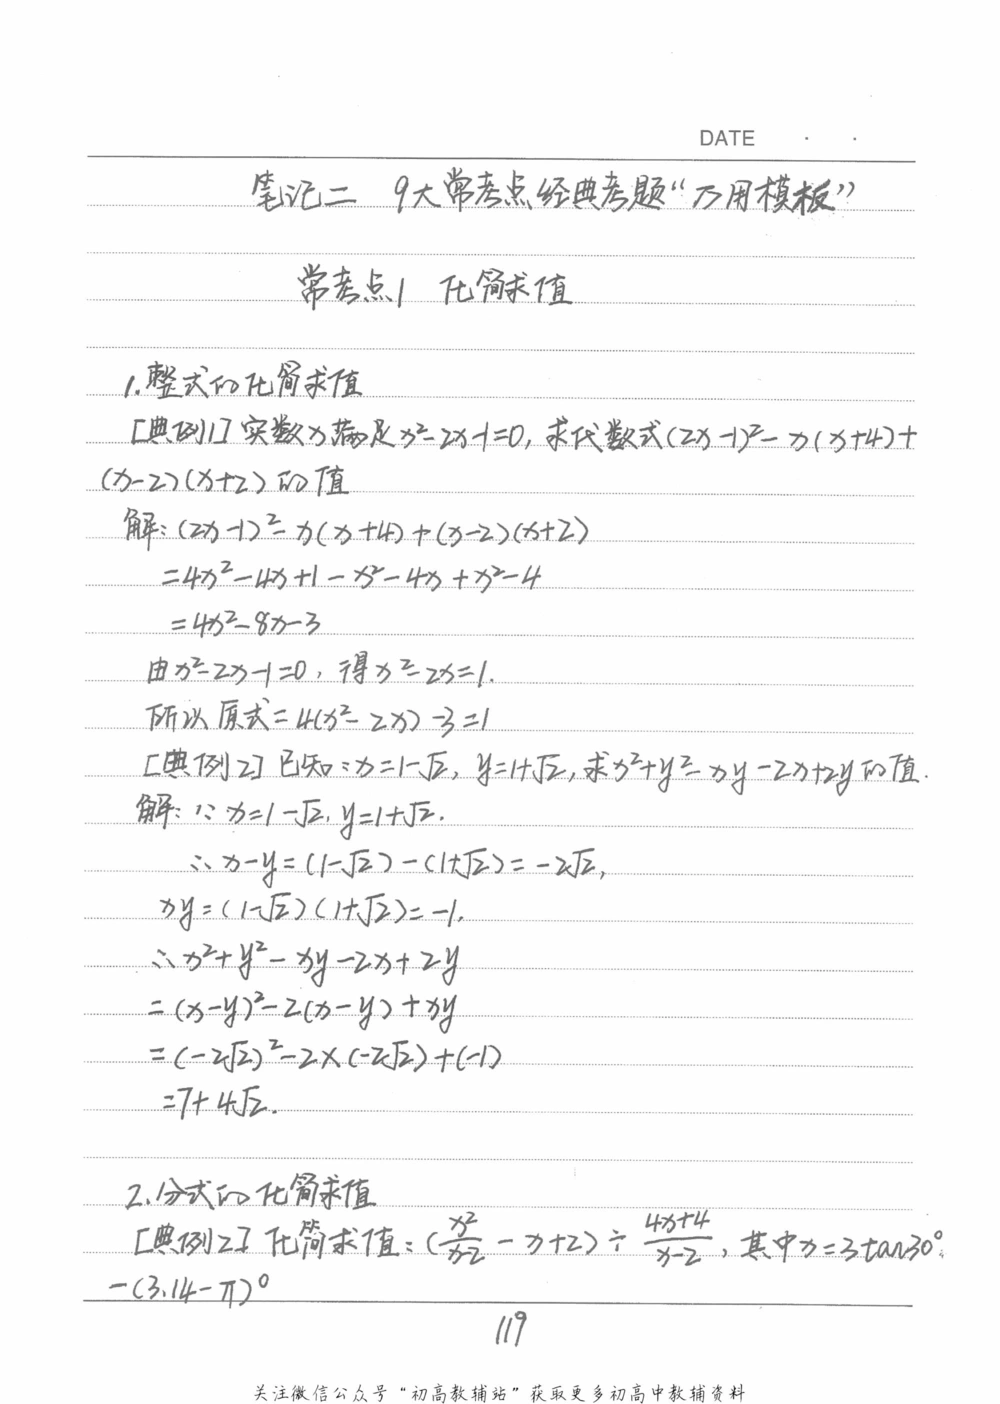 DATE · ·
笔记二 9大常考点经典考题“万用模板”
常考点1 化简求值
1.整式的化简求值
[典例1]实数x满足x²-2x-1=0,求代数式(2x-1)²-x(x+4)+
(x-2)(x+2)的值
解:(2x-1)²-x(x+4)+(x-2)(x+2)
=4x²-4x+1-x²-4x+x²-4
=4x²-8x-3
由x²-2x-1=0,得x²-2x=1.
所以原式=4(x²-2x)-3=1
[典例2]已知:x=1-√2,y=1+√2,求x²+y²-xy-2x+2y的值.
解:∵x=1-√2,y=1+√2.
∴x-y=(1-√2)-(1+√2)=-2√2,
xy=(1-√2)(1+√2)=-1.
∴x²+y²-xy-2x+2y
=(x-y)²-2(x-y)+xy
=(-2√2)²-2×(-2√2)+(-1)
=7+4√2.
2.分式的化简求值
[典例2]化简求值:(x²/(x-2)-x+2)÷(4x+4)/(x-2),其中x=3tan30°
-(3.14-π)⁰
119
关注微信公众号“初高教辅站”获取更多初高中教辅资料